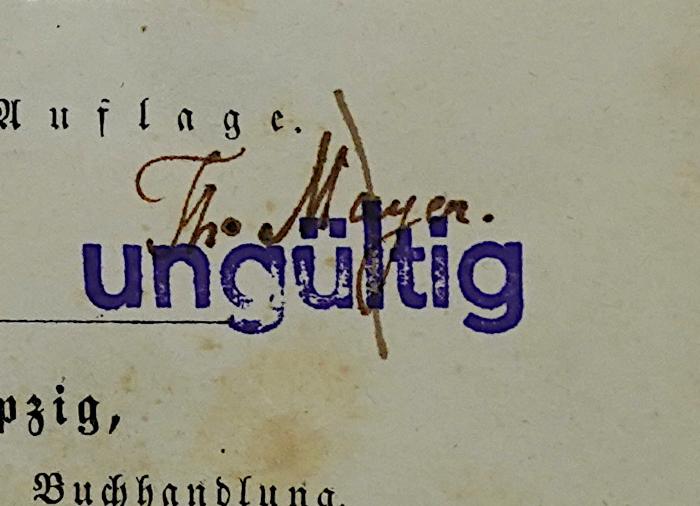 Auflage.
Tho Mayer.
ungültig
pzig,
Buchhandlung.